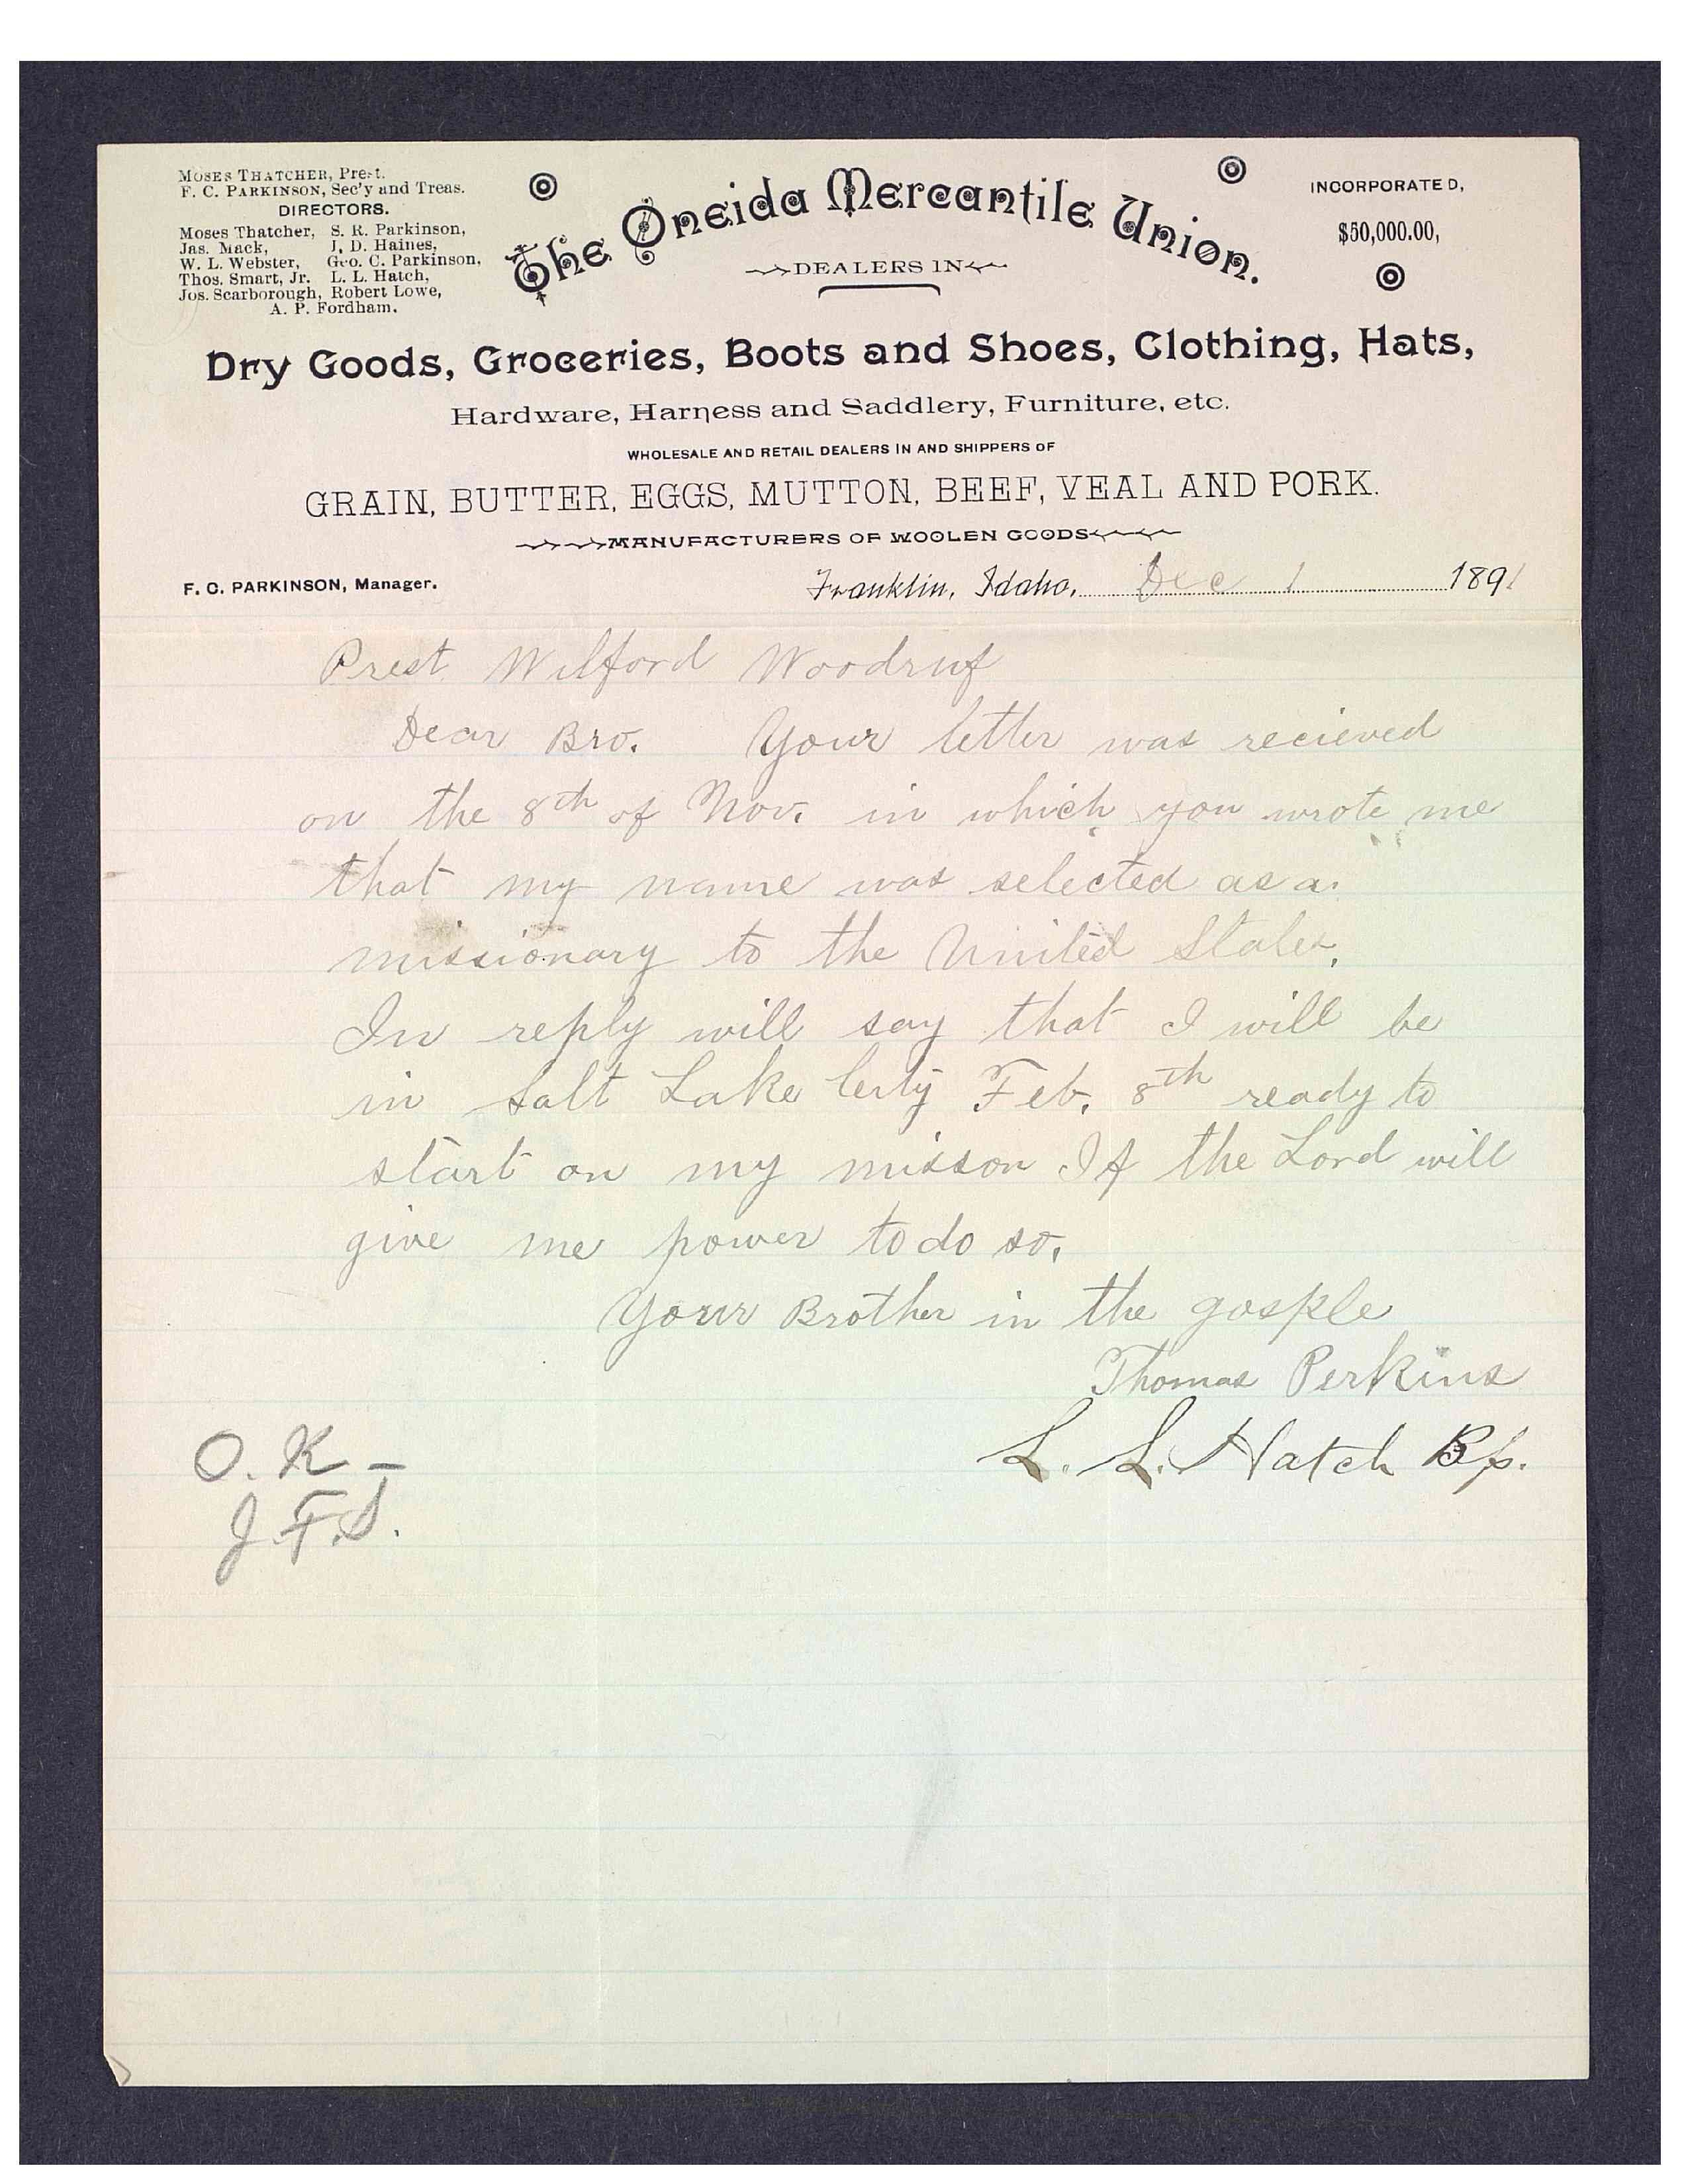 MOSES THATCHER, Prest.
F. C. PARKINSON, Sec'y and Treas.
DIRECTORS.
Moses Thatcher, S. R. Parkinson,
Jas. Mack, J. D. Haines,
W. L. Webster, Geo. C. Parkinson,
Thos. Smart, Jr. L. L. Hatch,
Jos. Scarborough, Robert Lowe,
A. P. Fordham.
The Oneida Mercantile Union.
INCORPORATED,
$50,000.00,
DEALERS IN
Dry Goods, Groceries, Boots and Shoes, Clothing, Hats,
Hardware, Harness and Saddlery, Furniture, etc.
WHOLESALE AND RETAIL DEALERS IN AND SHIPPERS OF
GRAIN, BUTTER, EGGS, MUTTON, BEEF, VEAL AND PORK.
MANUFACTURERS OF WOOLEN GOODS
F. C. PARKINSON, Manager.
Franklin, Idaho, Dec 1 1891
Prest. Wilford Woodruf
Dear Bro. Your letter was recieved
on the 8th of Nov. in which you wrote me
that my name was selected as a
missionary to the United States.
In reply will say that I will be
in Salt Lake Ceity Feb. 8th ready to
start on my misson If the Lord will
give me power to do so.
Your Brother in the gosple
Thomas Perkins
L. L. Hatch Bp.
O. K –
J. F. S.